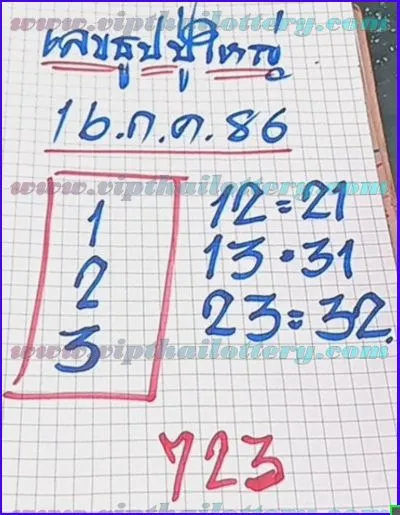 www.vipthailottery.com
เลขธูปปู่ใหญ่
16.ก.ค.86
www.vipthailottery.com
1
2
3
12=21
13=31
23=32.
www.vipthailottery.com
723